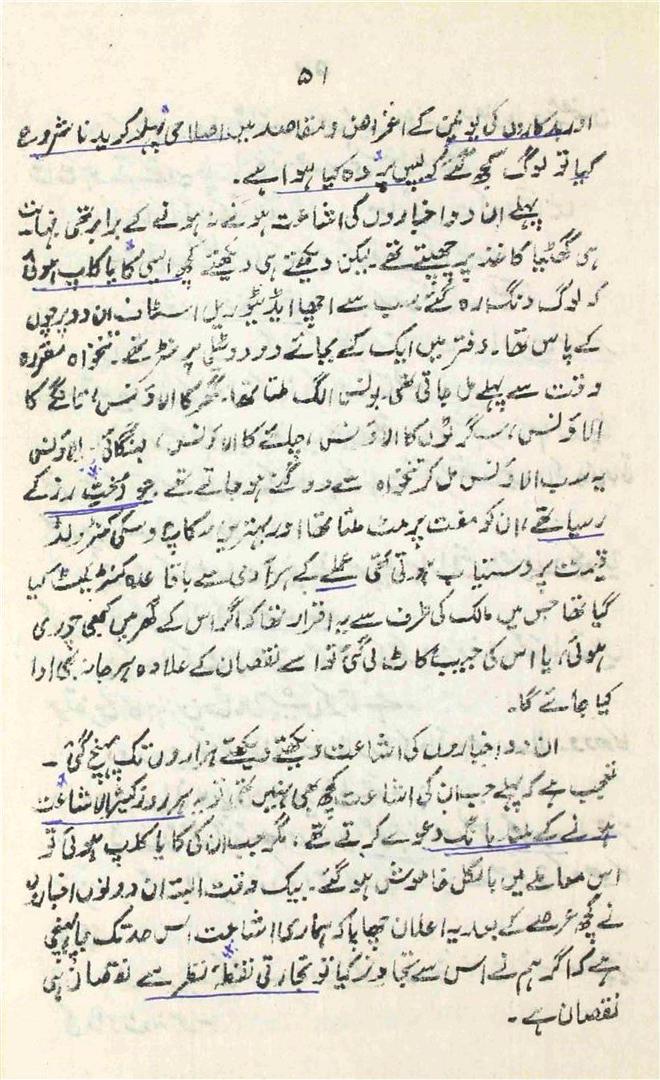 ۵۱
اور بدکاروں کی یونین کے اغراض و مقاصد میں اصلاحی پہلو کریدنا شروع
کیا تو لوگ سمجھ گئے کہ پس پردہ کیا ہوا ہے۔
پہلے ان دو اخباروں کی اشاعت ہونے نہ ہونے کے برابر تھی نہایت
ہی گھٹیا کاغذ پر چھپتے تھے۔ لیکن دیکھتے ہی دیکھتے کچھ ایسی کایا کلپ ہوئی
کہ لوگ دنگ رہ گئے۔ سب سے اچھا ایڈیٹوریل اسٹاف ان دو پرچوں
کے پاس تھا۔ دفتر میں ایک کے بجائے دو دو ٹیلی پرنٹر تھے۔ تنخواہ مقررہ
وقت سے پہلے مل جاتی تھی۔ بونس الگ ملتا تھا۔ گھر کا الاؤنس، تانگے کا
الاؤنس، سگرٹوں کا الاؤنس، چائے کا الاؤنس، مہنگائی الاؤنس
یہ سب الاؤنس مل کر تنخواہ سے دوگنے ہو جاتے تھے۔ جو دخترِ رز کے
رسیا تھے، ان کو مفت پرمٹ ملتا تھا اور بہترین سکاچ وسکی کنٹرولڈ
قیمت پر دستیاب ہوتی تھی عملے کے ہر آدمی سے باقاعدہ کنٹریکٹ کیا
گیا تھا جس میں مالک کی طرف سے یہ اقرار تھا کہ اگر اس کے گھر میں کبھی چوری
ہوئی، یا اس کی جیب کاٹ لی گئی تو اسے نقصان کے علاوہ ہرجانہ بھی ادا
کیا جائے گا۔
ان دو اخباروں کی اشاعت دیکھتے دیکھتے ہزاروں تک پہنچ گئی۔
تعجب ہے کہ پہلے جب ان کی اشاعت کچھ بھی نہیں تھی تو یہ ہر روز کثیر الاشاعت
ہونے کے بلند بانگ دعوے کرتے تھے، مگر جب ان کی کایا کلپ ہوئی تو
اس معاملے میں بالکل خاموش ہو گئے۔ بیک وقت البتہ ان دونوں اخباروں
نے کچھ عرصے کے بعد یہ اعلان چھاپا کہ ہماری اشاعت اس حد تک جا پہنچی
ہے کہ اگر ہم نے اس سے تجاوز کیا تو تجارتی نقطۂ نظر سے نقصان ہی
نقصان ہے۔